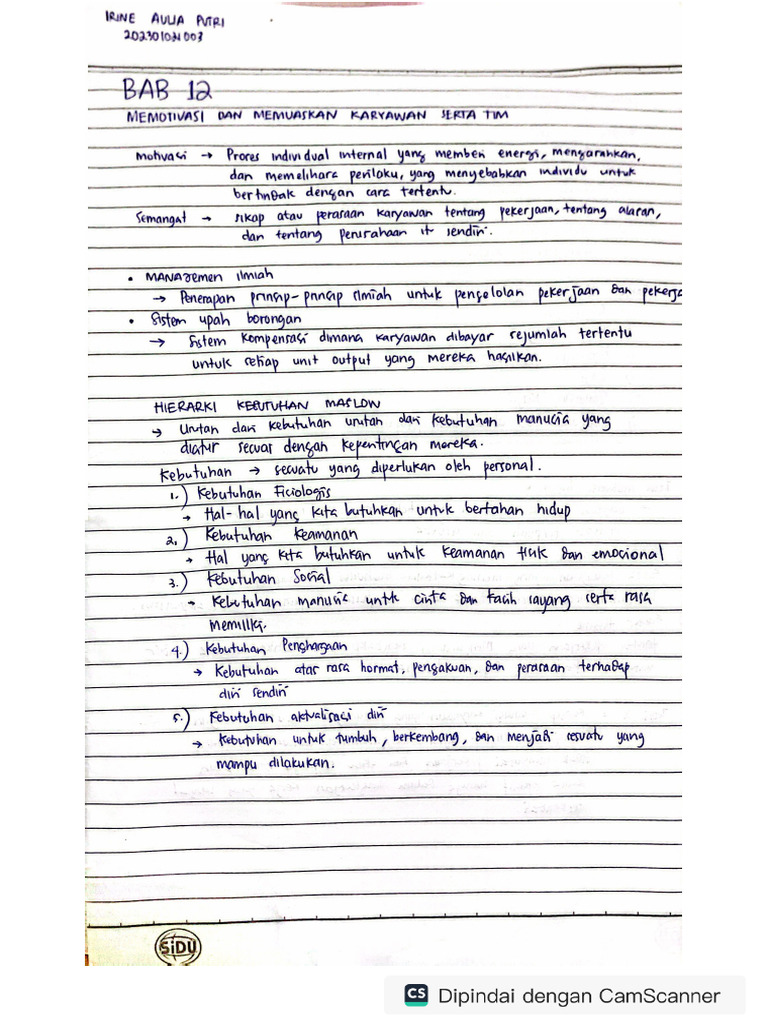 IRINE AULIA PUTRI
202301021003
BAB 12
MEMOTIVASI DAN MEMUASKAN KARYAWAN SERTA TIM
Motivasi → Proses individual internal yang memberi energi, mengarahkan,
dan memelihara perilaku, yang menyebabkan individu untuk
bertindak dengan cara tertentu.
Semangat → sikap atau perasaan karyawan tentang pekerjaan, tentang atasan,
dan tentang perusahaan it sendiri.
• MANAJEMEN Ilmiah
→ Penerapan prinsip-prinsip ilmiah untuk pengelolan pekerjaan dan pekerja
• Sistem upah borongan
→ Sistem kompensasi dimana karyawan dibayar sejumlah tertentu
untuk setiap unit output yang mereka hasilkan.
HIERARKI KEBUTUHAN MASLOW
→ Urutan dari kebutuhan urutan dari kebutuhan manusia yang
diatur sesuai dengan kepentingan mereka.
Kebutuhan → sesuatu yang diperlukan oleh personal.
1.) Kebutuhan Fisiologis
→ Hal-hal yang kita butuhkan untuk bertahan hidup
2.) Kebutuhan Keamanan
→ Hal yang kita butuhkan untuk keamanan fisik dan emosional
3.) Kebutuhan Sosial
→ Kebutuhan manusia untk cinta dan kasih sayang serta rasa
memiliki.
4.) Kebutuhan Penghargaan
→ Kebutuhan atas rasa hormat, pengakuan, dan perasaan terhadap
diri sendiri
5.) Kebutuhan aktualisasi diri
→ Kebutuhan untuk tumbuh, berkembang, dan menjadi sesuatu yang
mampu dilakukan.
SiDU
CS Dipindai dengan CamScanner